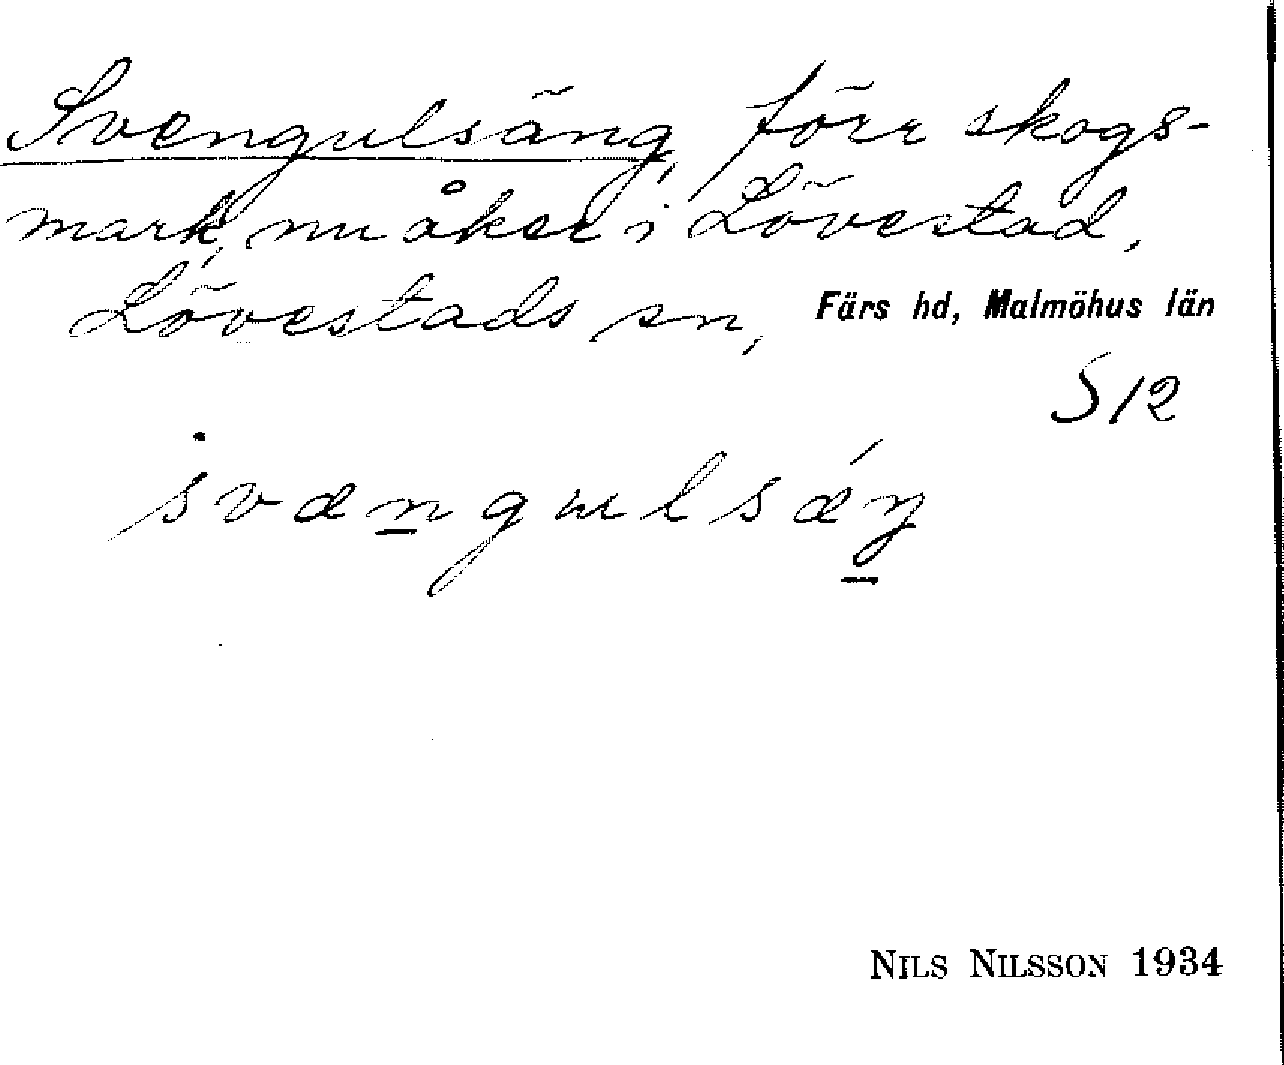 Svengulsäng, förr skogs-
mark, nu åker i Lövestad,
Lövestads sn, Färs hd, Malmöhus län
S 12
svængulsǽŋ
NILS NILSSON 1934